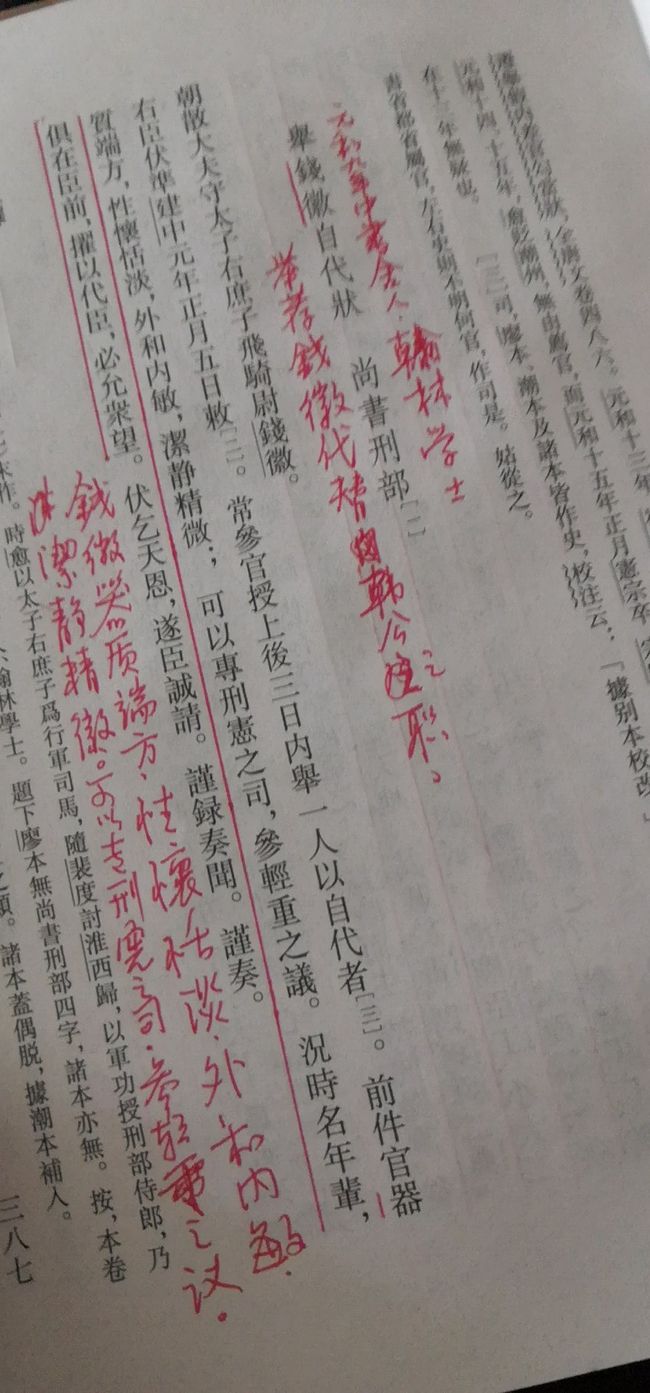 元和十四、十五年，愈貶潮州，無由薦官，而元和十五年正月憲宗卒
在十三年無疑也。　〔三〕司，廖本、潮本及諸本皆作史，校注云：「據别本校改。」
書省都省屬官，左右史則不明何官，作司是。姑從之。
元和九年中書舍人、翰林学士
舉錢徽自代狀　尚書刑部〔一〕
举荐錢徽代替韩公之职。
朝散大夫守太子右庶子飛騎尉錢徽。
右臣伏準建中元年正月五日敕〔二〕。常參官授上後三日内舉一人以自代者〔三〕。前件官器
質端方，性懷恬淡，外和内敏，潔静精微；可以專刑憲之司，參輕重之議。況時名年輩，
俱在臣前，擢以代臣，必允衆望。伏乞天恩，遂臣誠請。謹録奏聞。謹奏。
錢徽器质端方、性懷恬淡、外和内敏、
潔静精微。可以专刑宪之司、参轻重之议。
時愈以太子右庶子爲行軍司馬，隨裴度討淮西歸，以軍功授刑部侍郎，乃
翰林學士。題下廖本無尚書刑部四字，諸本亦無。按，本卷
諸本蓋偶脱，據潮本補入。
三八七